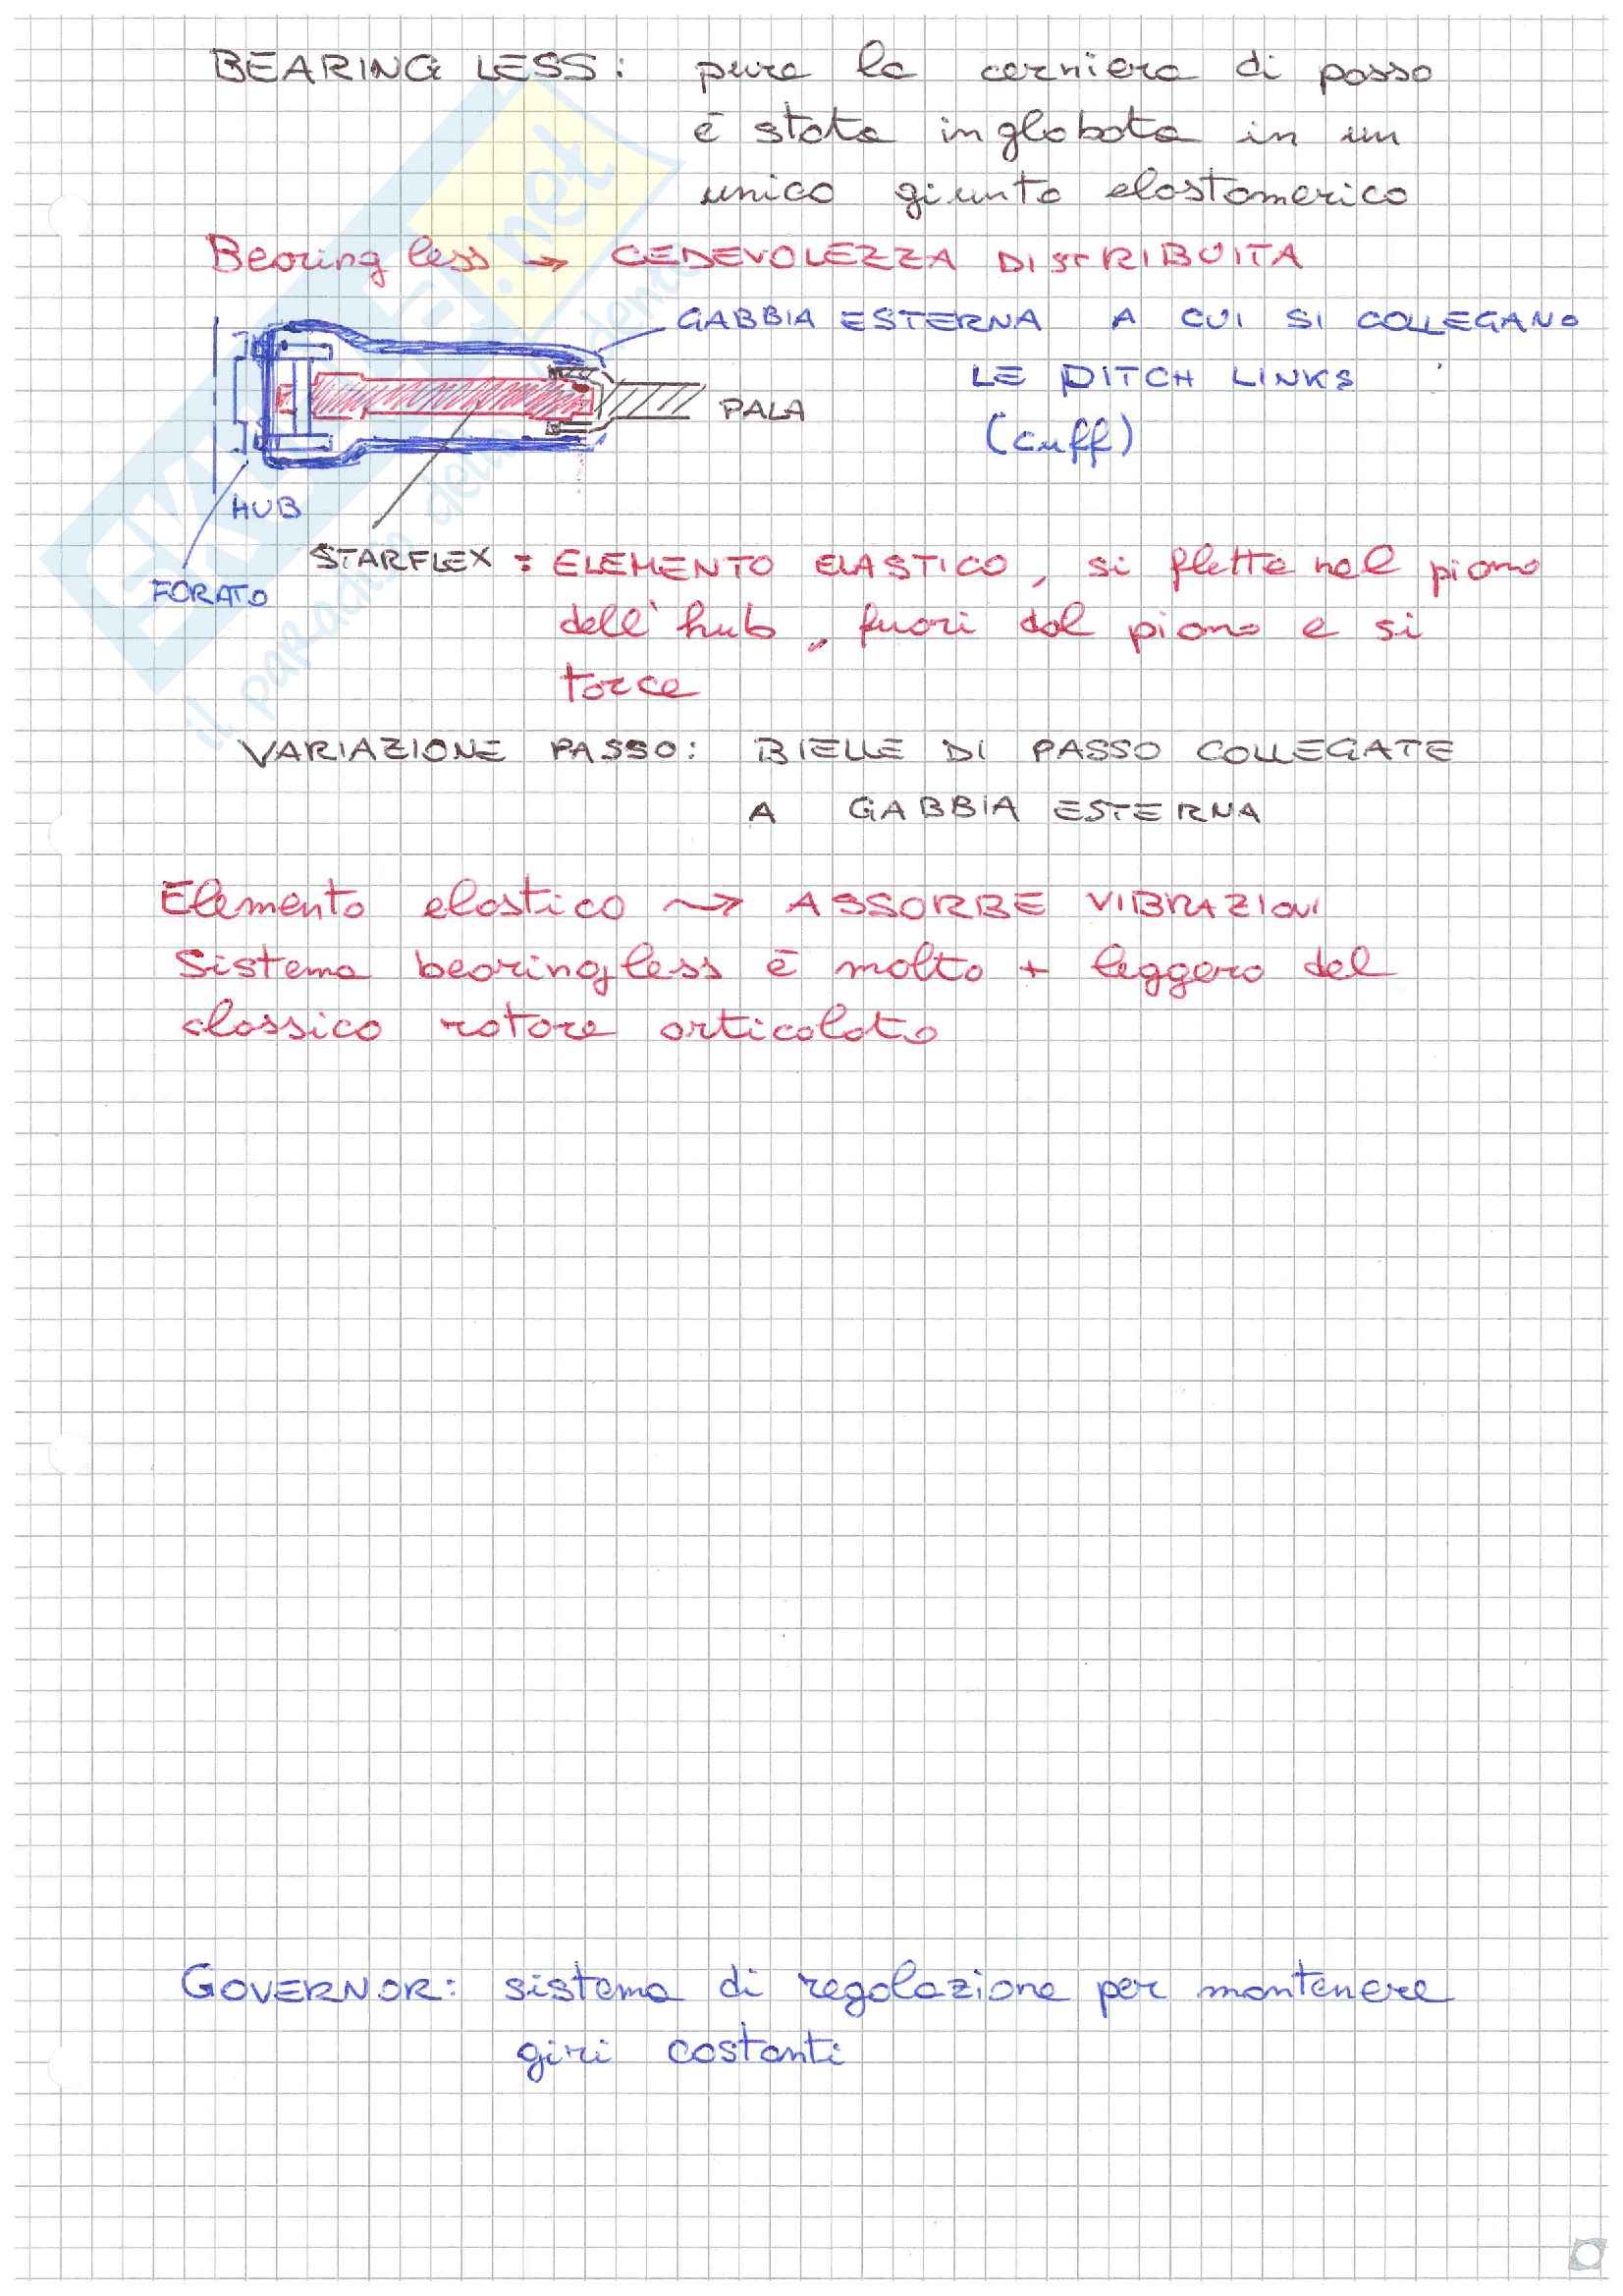 BEARING LESS: pure la cerniera di passo
è stata inglobata in un
unico giunto elastomerico
Bearing less → CEDEVOLEZZA DISTRIBUITA
GABBIA ESTERNA A CUI SI COLLEGANO
LE PITCH LINKS
(cuff)
PALA
HUB
FORATO
STARFLEX : ELEMENTO ELASTICO, si flette nel piano
dell'hub, fuori dal piano e si
torce
VARIAZIONE PASSO: BIELLE DI PASSO COLLEGATE
A GABBIA ESTERNA
Elemento elastico → ASSORBE VIBRAZIONI
Sistema bearingless è molto + leggero del
classico rotore articolato
GOVERNOR: sistema di regolazione per mantenere
giri costanti
SKUOLA.net
il paradiso dello